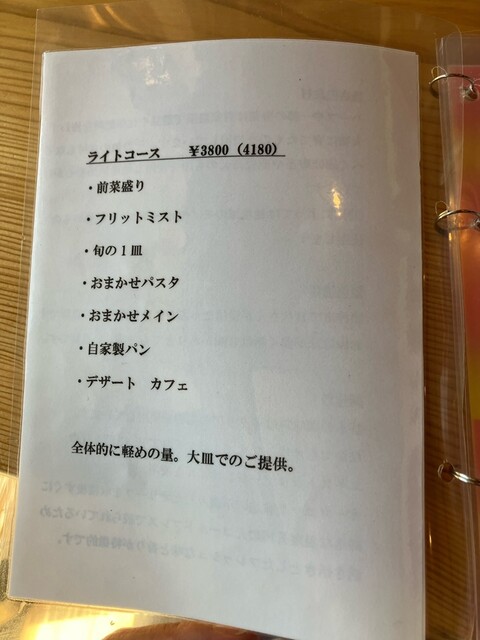 ライトコース　¥3800（4180）
・前菜盛り
・フリットミスト
・旬の１皿
・おまかせパスタ
・おまかせメイン
・自家製パン
・デザート　カフェ
全体的に軽めの量。大皿でのご提供。